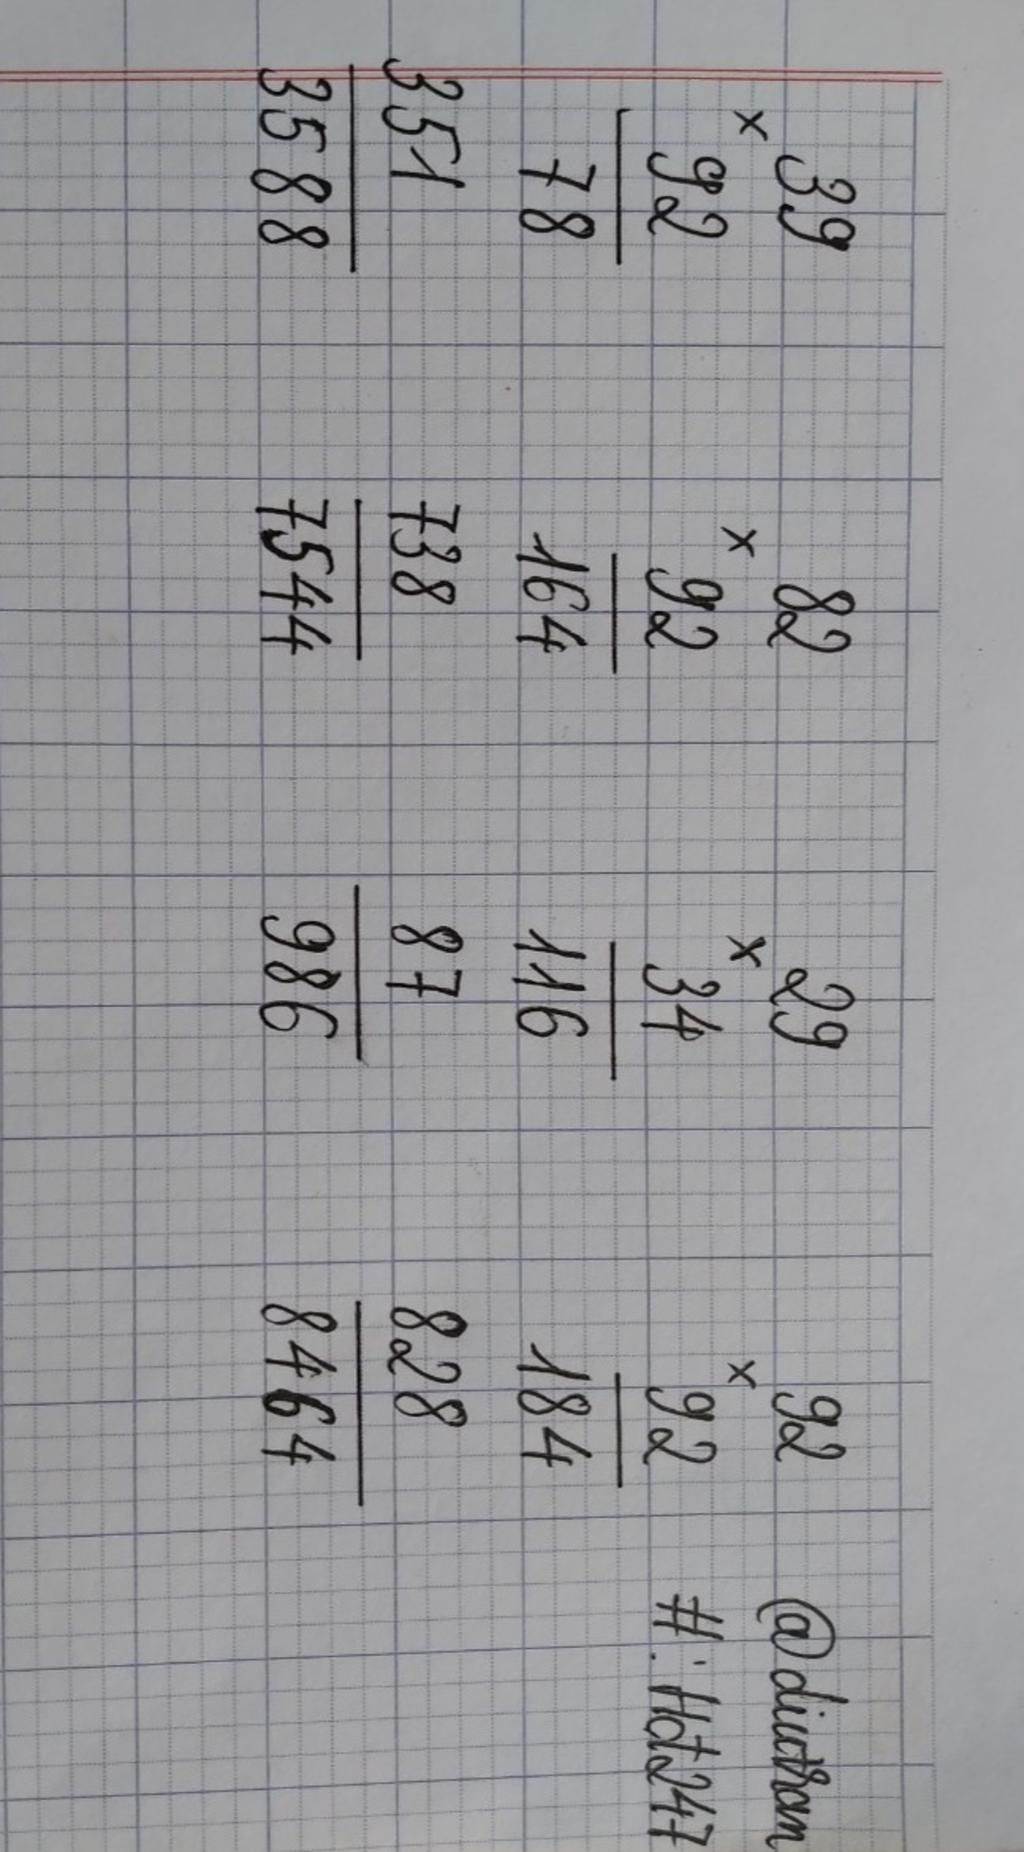 39
× 92
78
351
3588
82
× 92
164
738
7544
29
× 34
116
87
986
92
× 92
184
828
8464
@diutran
#: Hot247